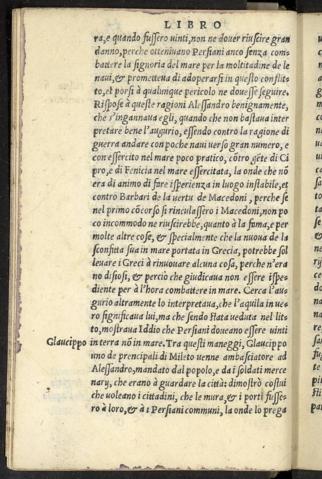 LIBRO
ra, e quando fussero uinti, non ne douer riuscire gran
danno, perche ottenivano Persiani anco senza com=
battere la signoria del mare per la moltitudine de le
naui, & prometteua di adoperarsi in questo conflitto
to, et porsi à qualunque pericolo ne douesse seguire.
Rispose à queste ragioni Alessandro benignamente,
che s'ingannaua egli, quando che non bastaua inter
pretare bene l'augurio, essendo contro la ragione di
guerra andare con poche naui uerso gran numero, e
con essercito nel mare poco pratico, cōtro gēte di Ci
pro, e di Fenicia nel mare essercitata, la onde nō
era di animo di fare isperienza in luogo instabile, et
contro Barbari de la uertu de Macedoni, perche se
nel primo cōcorso si rinculassero i Macedoni, non po
co incommodo ne riuscirebbe, quanto à la fama, e per
molte altre cose, & spetialmente che la nuoua de la
sconfitta sua in mare portata in Grecia, potrebbe sol
leuare i Greci à rinuouare alcuna cosa, perche n'era
no disiosi, & percio che giudicaua non essere ispe=
diente per à l'hora combattere in mare. Cerca l'au=
gurio altramente lo interpretaua, che l'aquila in ue=
ro significaua lui, ma che sendo stata ueduta nel lit=
to, mostraua Iddio che Persiani doueano essere uinti
Glaucippo in terra nō in mare. Tra questi maneggi, Glaucippo
uno de prencipali di Mileto uenne ambasciatore ad
Alessandro, mandato dal popolo, e da i soldati merce
nary, che erano à guardare la città: dimostrò costui
che uoleano i cittadini, che le mura, & i porti fusse=
ro à loro, & à i Persiani communi, la onde lo prega